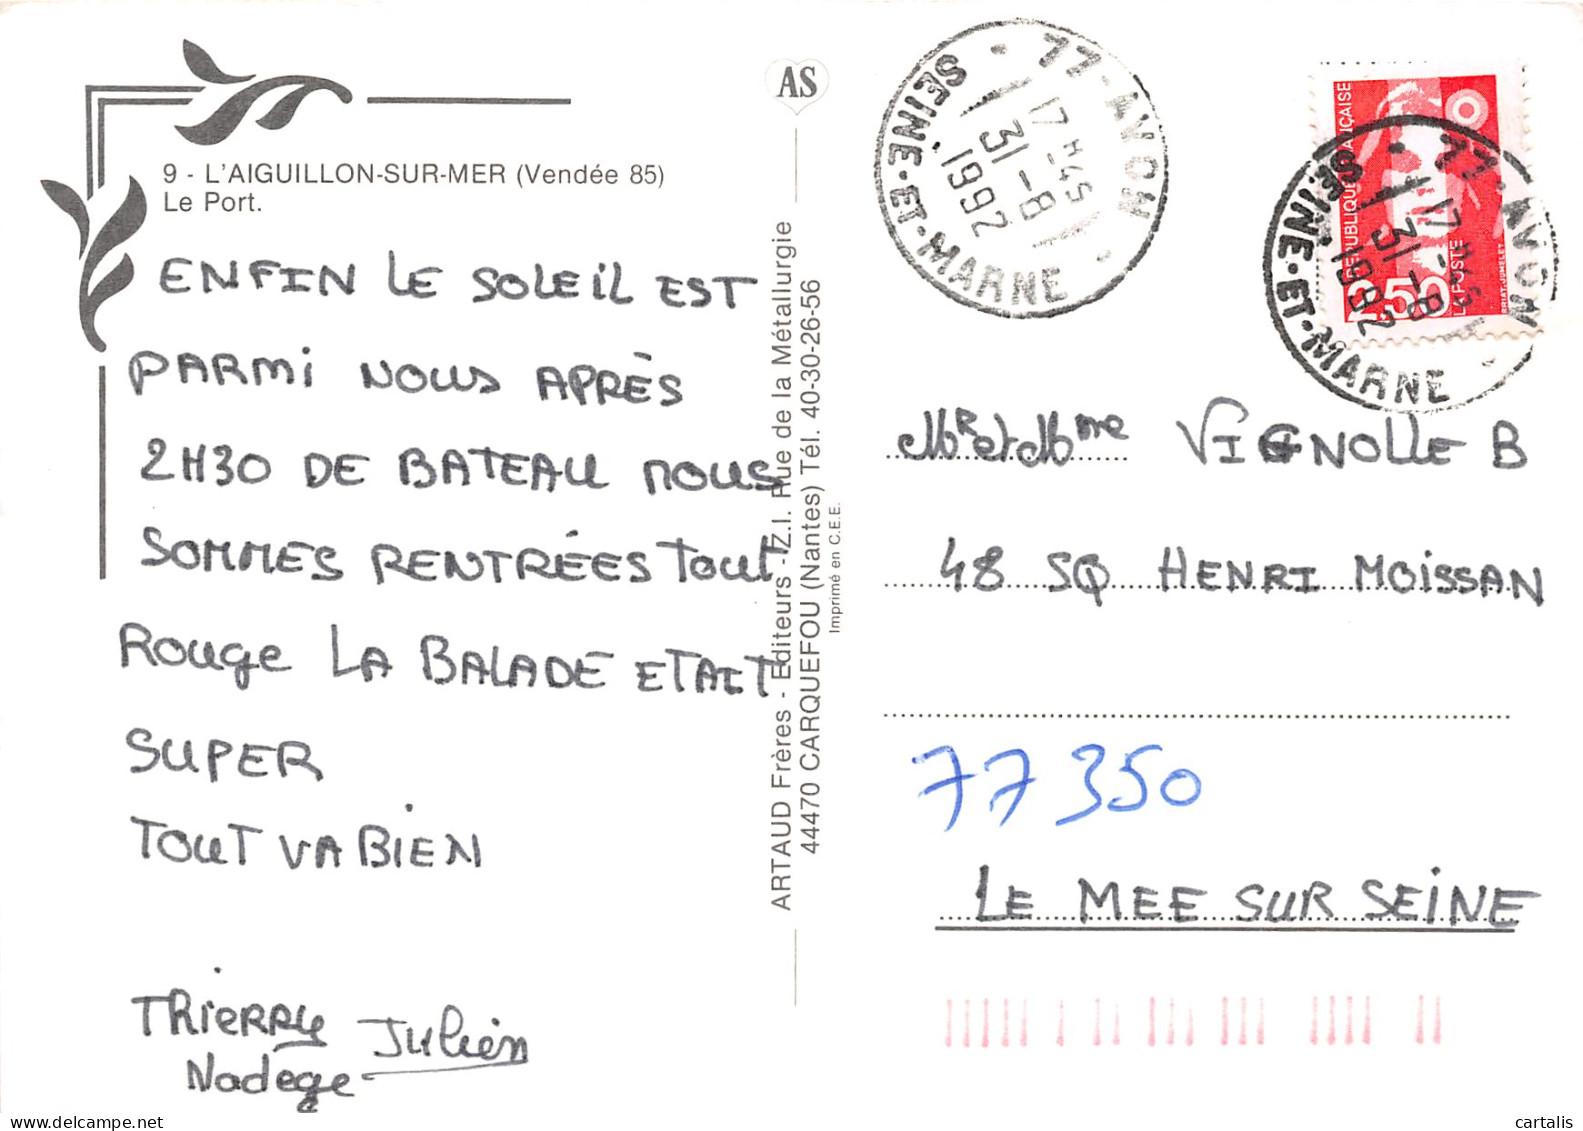 9 - L'AIGUILLON-SUR-MER (Vendée 85)
Le Port.
ENFIN LE SOLEIL EST
PARMI NOUS APRÈS
2H30 DE BATEAU NOUS
SOMMES RENTRÉES TOUT
ROUGE LA BALADE ETAIT
SUPER
TOUT VA BIEN
THIERRY JULIEN
NADEGE
AS
ARTAUD Frères - Editeurs - Z.I. Rue de la Métallurgie
44470 CARQUEFOU (Nantes) Tél. 40-30-26-56
Imprimé en C.E.E.
77 - AVON
17H45
31-8
1992
SEINE-ET-MARNE
RÉPUBLIQUE FRANÇAISE
2,50
LA POSTE
BRIAT-JUMELET
77 - AVON
17H45
31-8
1992
SEINE-ET-MARNE
Mr et Mme VIGNOLLE B
48 SQ HENRI MOISSAN
77350
LE MEE SUR SEINE
cartalis